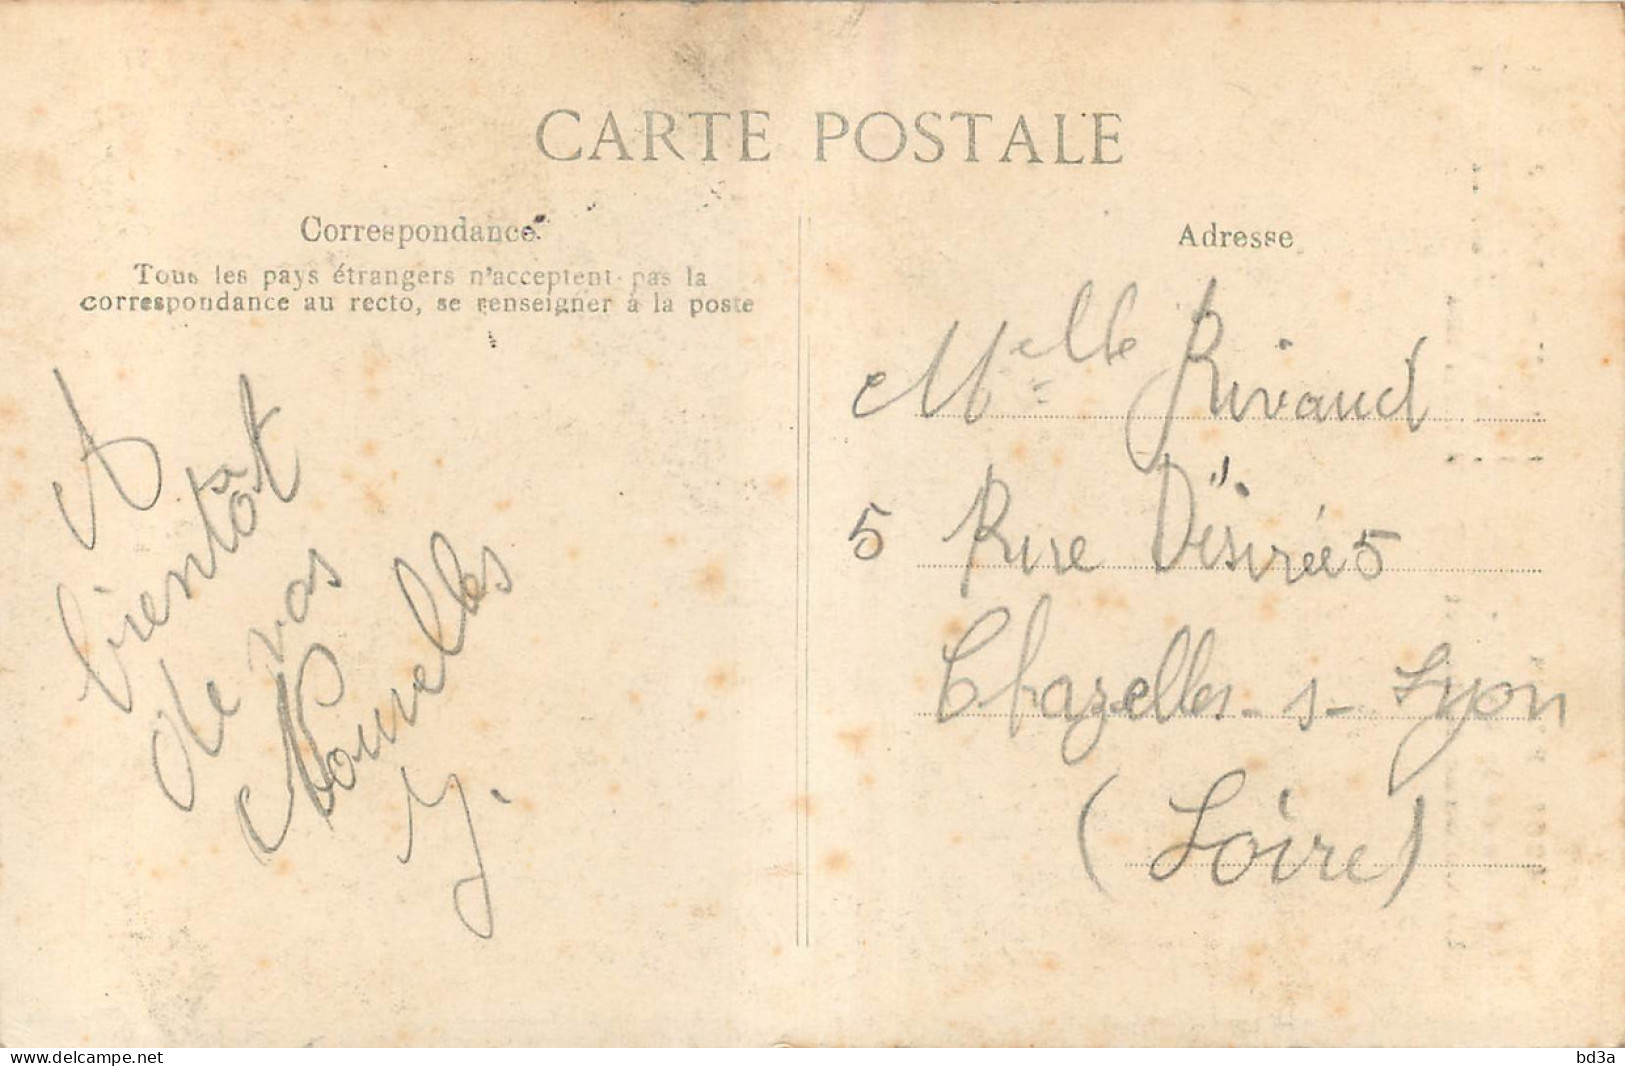 CARTE POSTALE
Correspondance
Tous les pays étrangers n'acceptent pas la
correspondance au recto, se renseigner à la poste
A
bientôt
de vos
Nouvelles
Y.
Adresse
Melle Rivaud
5 Rue Désirée 5
Chazelles-s-Lyon
(Loire)
delcampe.net
bd3a